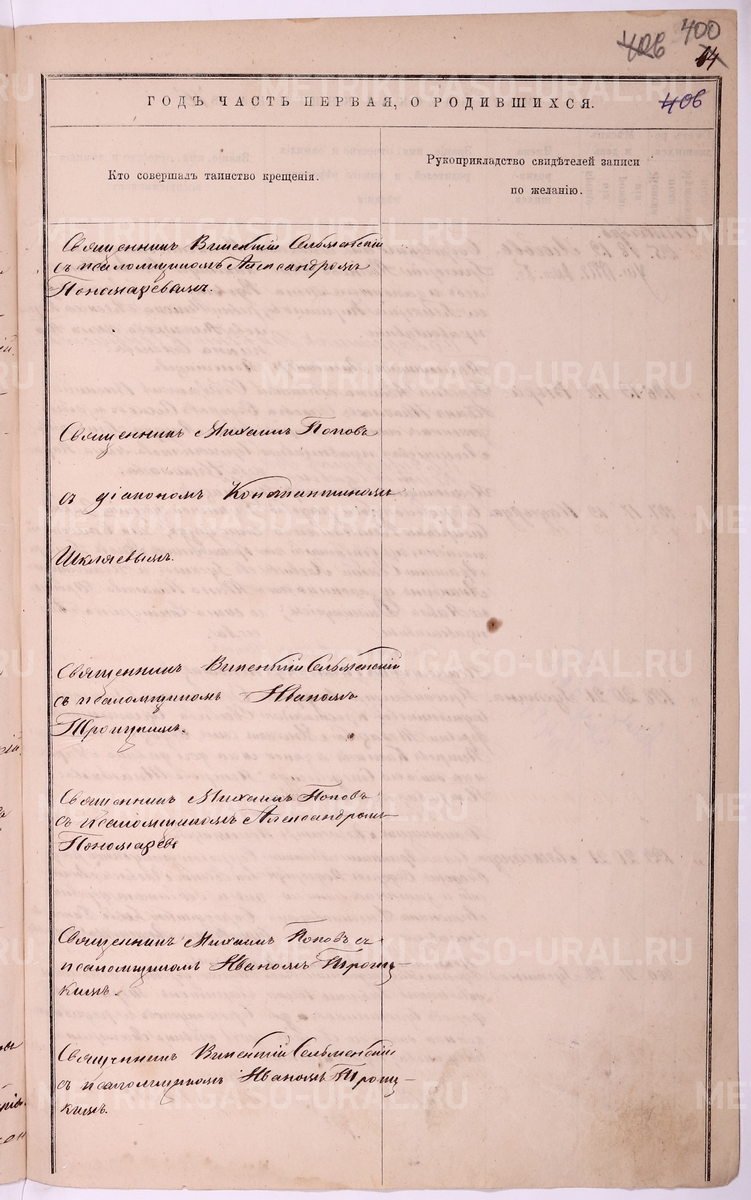 406 400
14
ГОДЪ ЧАСТЬ ПЕРВАЯ, О РОДИВШИХСЯ. 406
Кто совершалъ таинство крещенія.
Рукоприкладство свидѣтелей записи
по желанію.
Священникъ Викентій Сельменскій
съ псаломщикомъ Александромъ
Пономаревымъ.
Священникъ Михаилъ Поповъ
съ діакономъ Константиномъ
Шкляевымъ.
Священникъ Викентій Сельменскій
съ псаломщикомъ Иваномъ
Троицкимъ.
Священникъ Михаилъ Поповъ
съ псаломщикомъ Александромъ
Пономаревъ
Священникъ Михаилъ Поповъ съ
псаломщикомъ Иваномъ Троиц-
кимъ.
Священникъ Викентій Сельменскій
съ псаломщикомъ Иваномъ Троиц-
кимъ.
METRIKI.GASO-URAL.RU